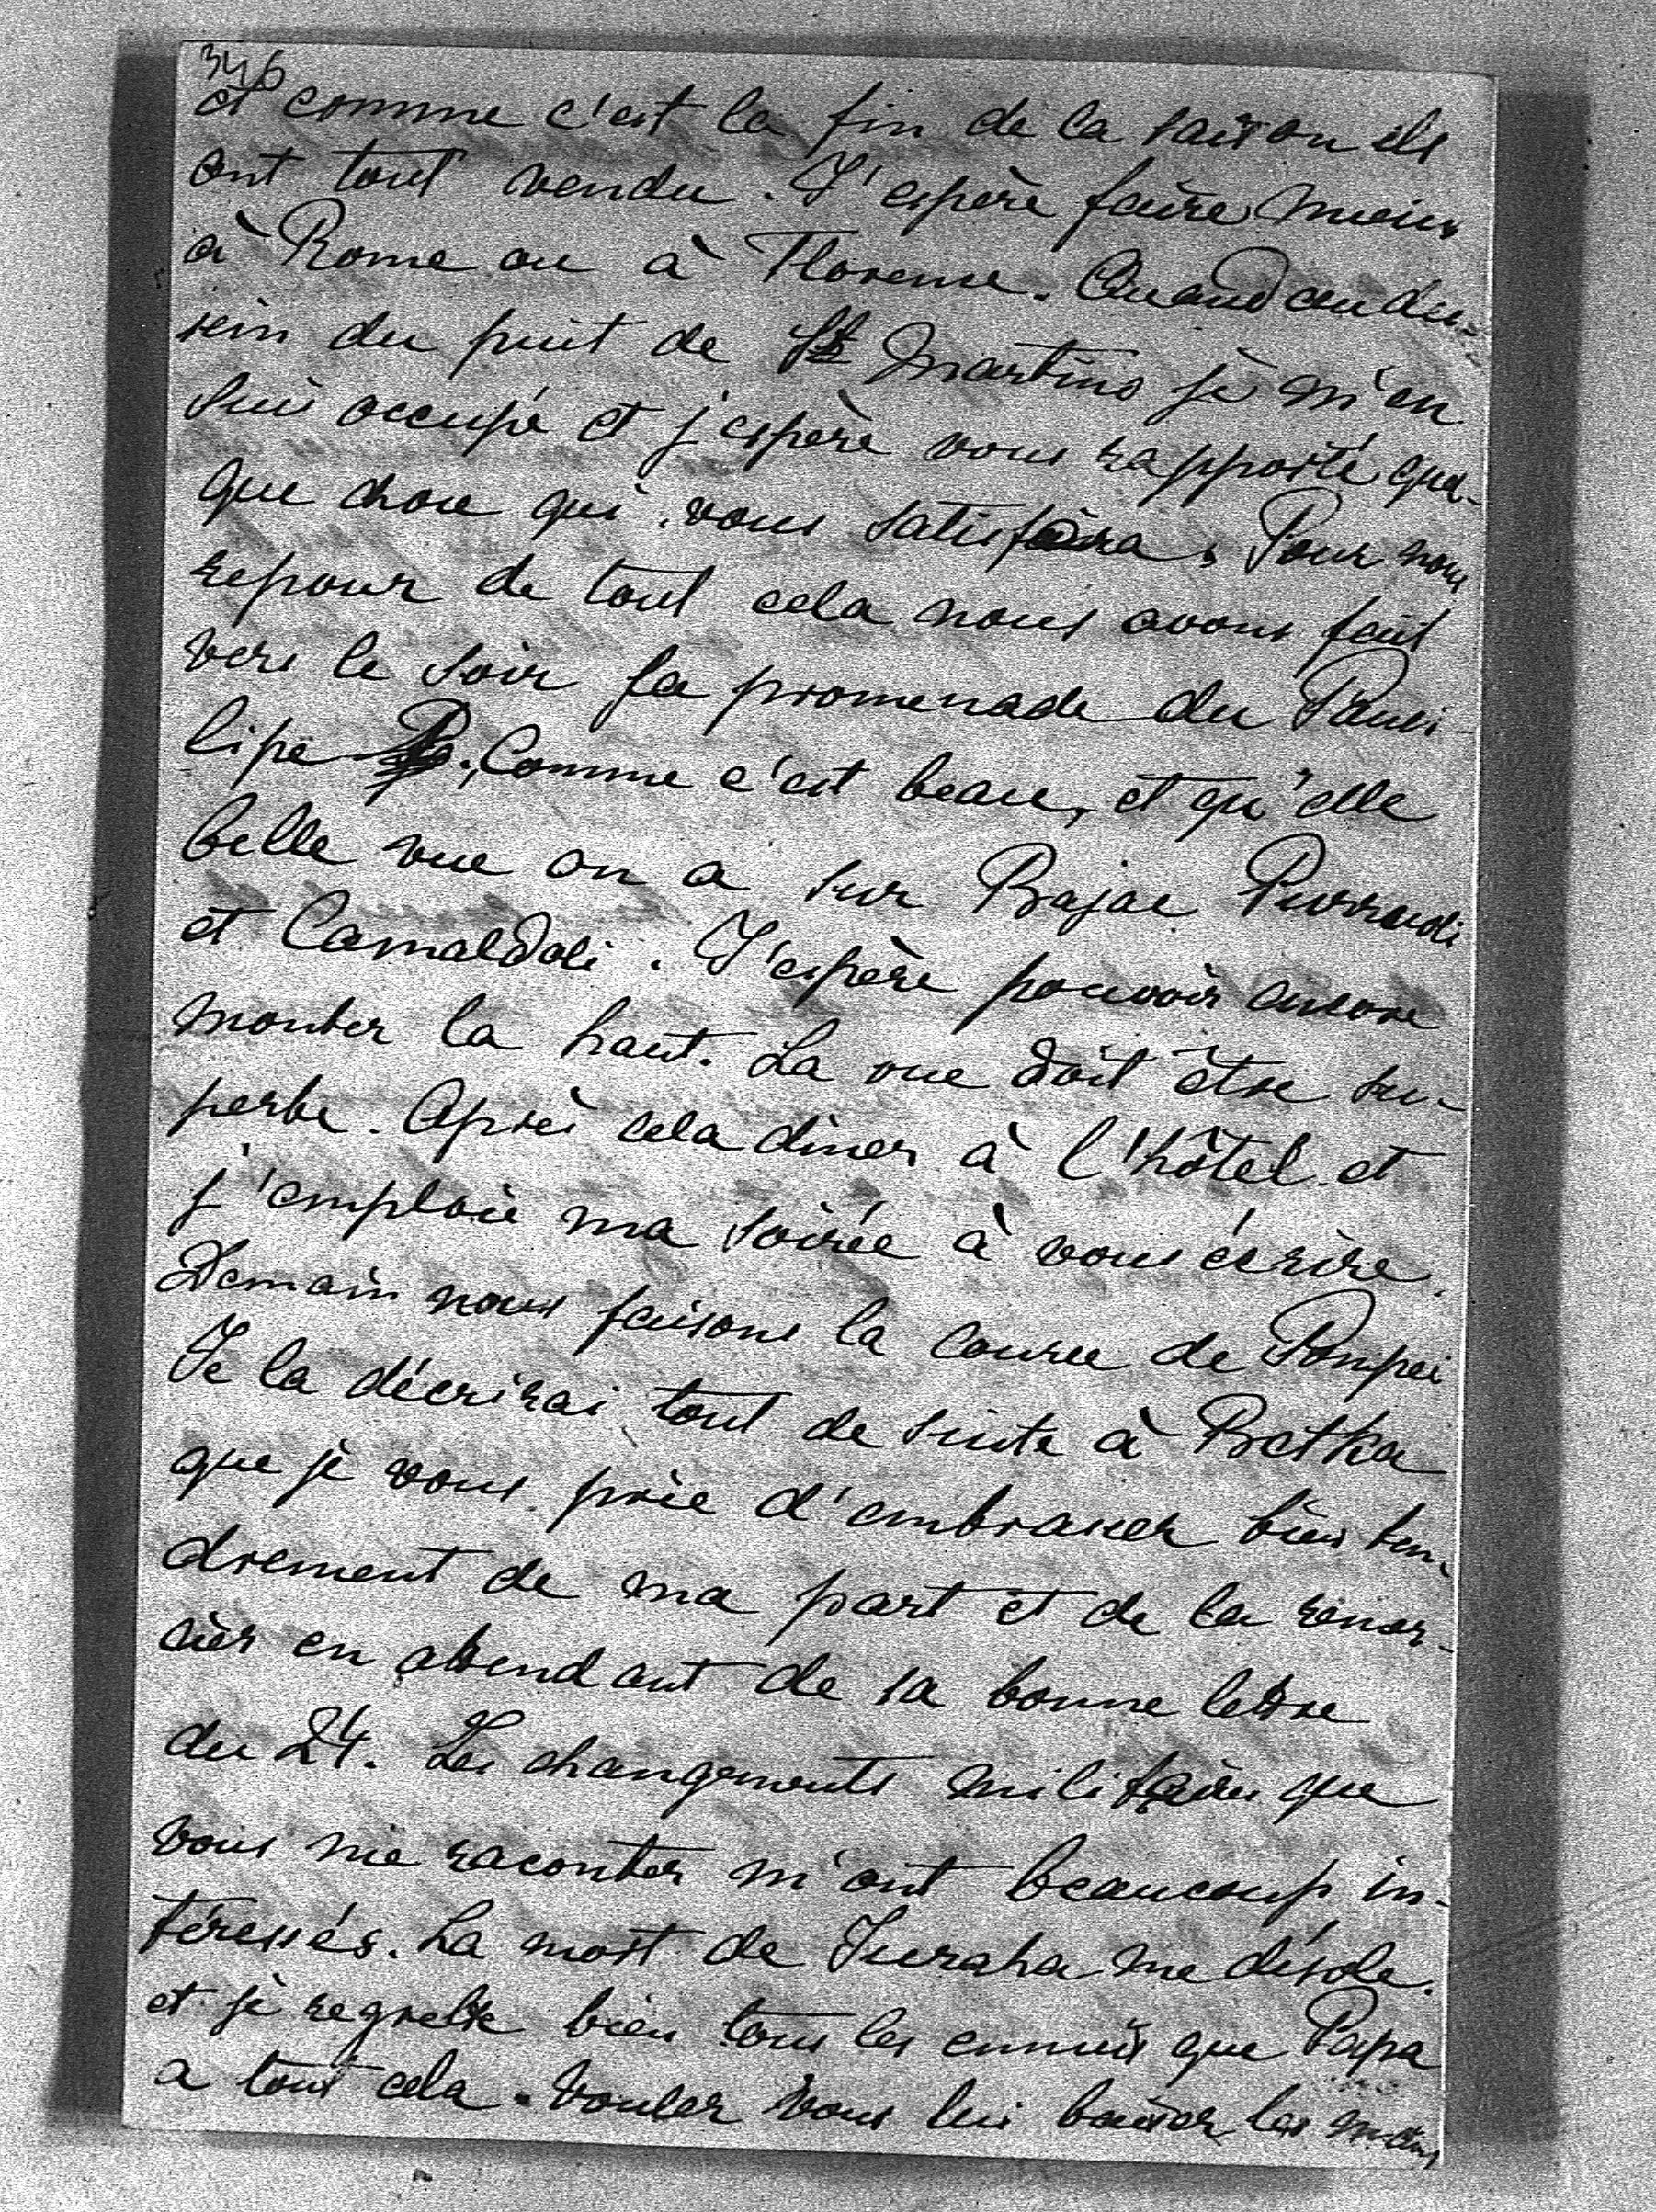 346
et comme c'est la fin de la saison ils
ont tout vendu. J'espère faire mieux
à Rome ou à Florence. Quand au des-
sein du puit de St Martino je m'en
suis occupé et j'espère vous rapporté quel-
que chose qui vous satisfaira. Pour nous
repouser de tout cela nous avons fait
vers le soir la promenade du Pausi-
lipe. Comme c'est beau, et qu'elle
belle vue on a sur Bajae
et Camaldoli. J'espère pouvoir encore
monter la haut. La vue doit être su-
perbe. Après cela diner à l'hôtel et
j'emploie ma soirée à vous écrire.
Demain nous faisons la course de Pompei
Je la décrirai tout de suite à Betka
que je vous prie d'embrasser bien ten-
drement de ma part et de la remer-
cier en attendant de sa bonne lettre
du 24. Les changements militaires que
vous me raconter m'ont beaucoup in-
téressés. La mort de me désole.
et je regrette bien tous les ennuis que Papa
a tout cela. Vouler vous lui baiser les mains